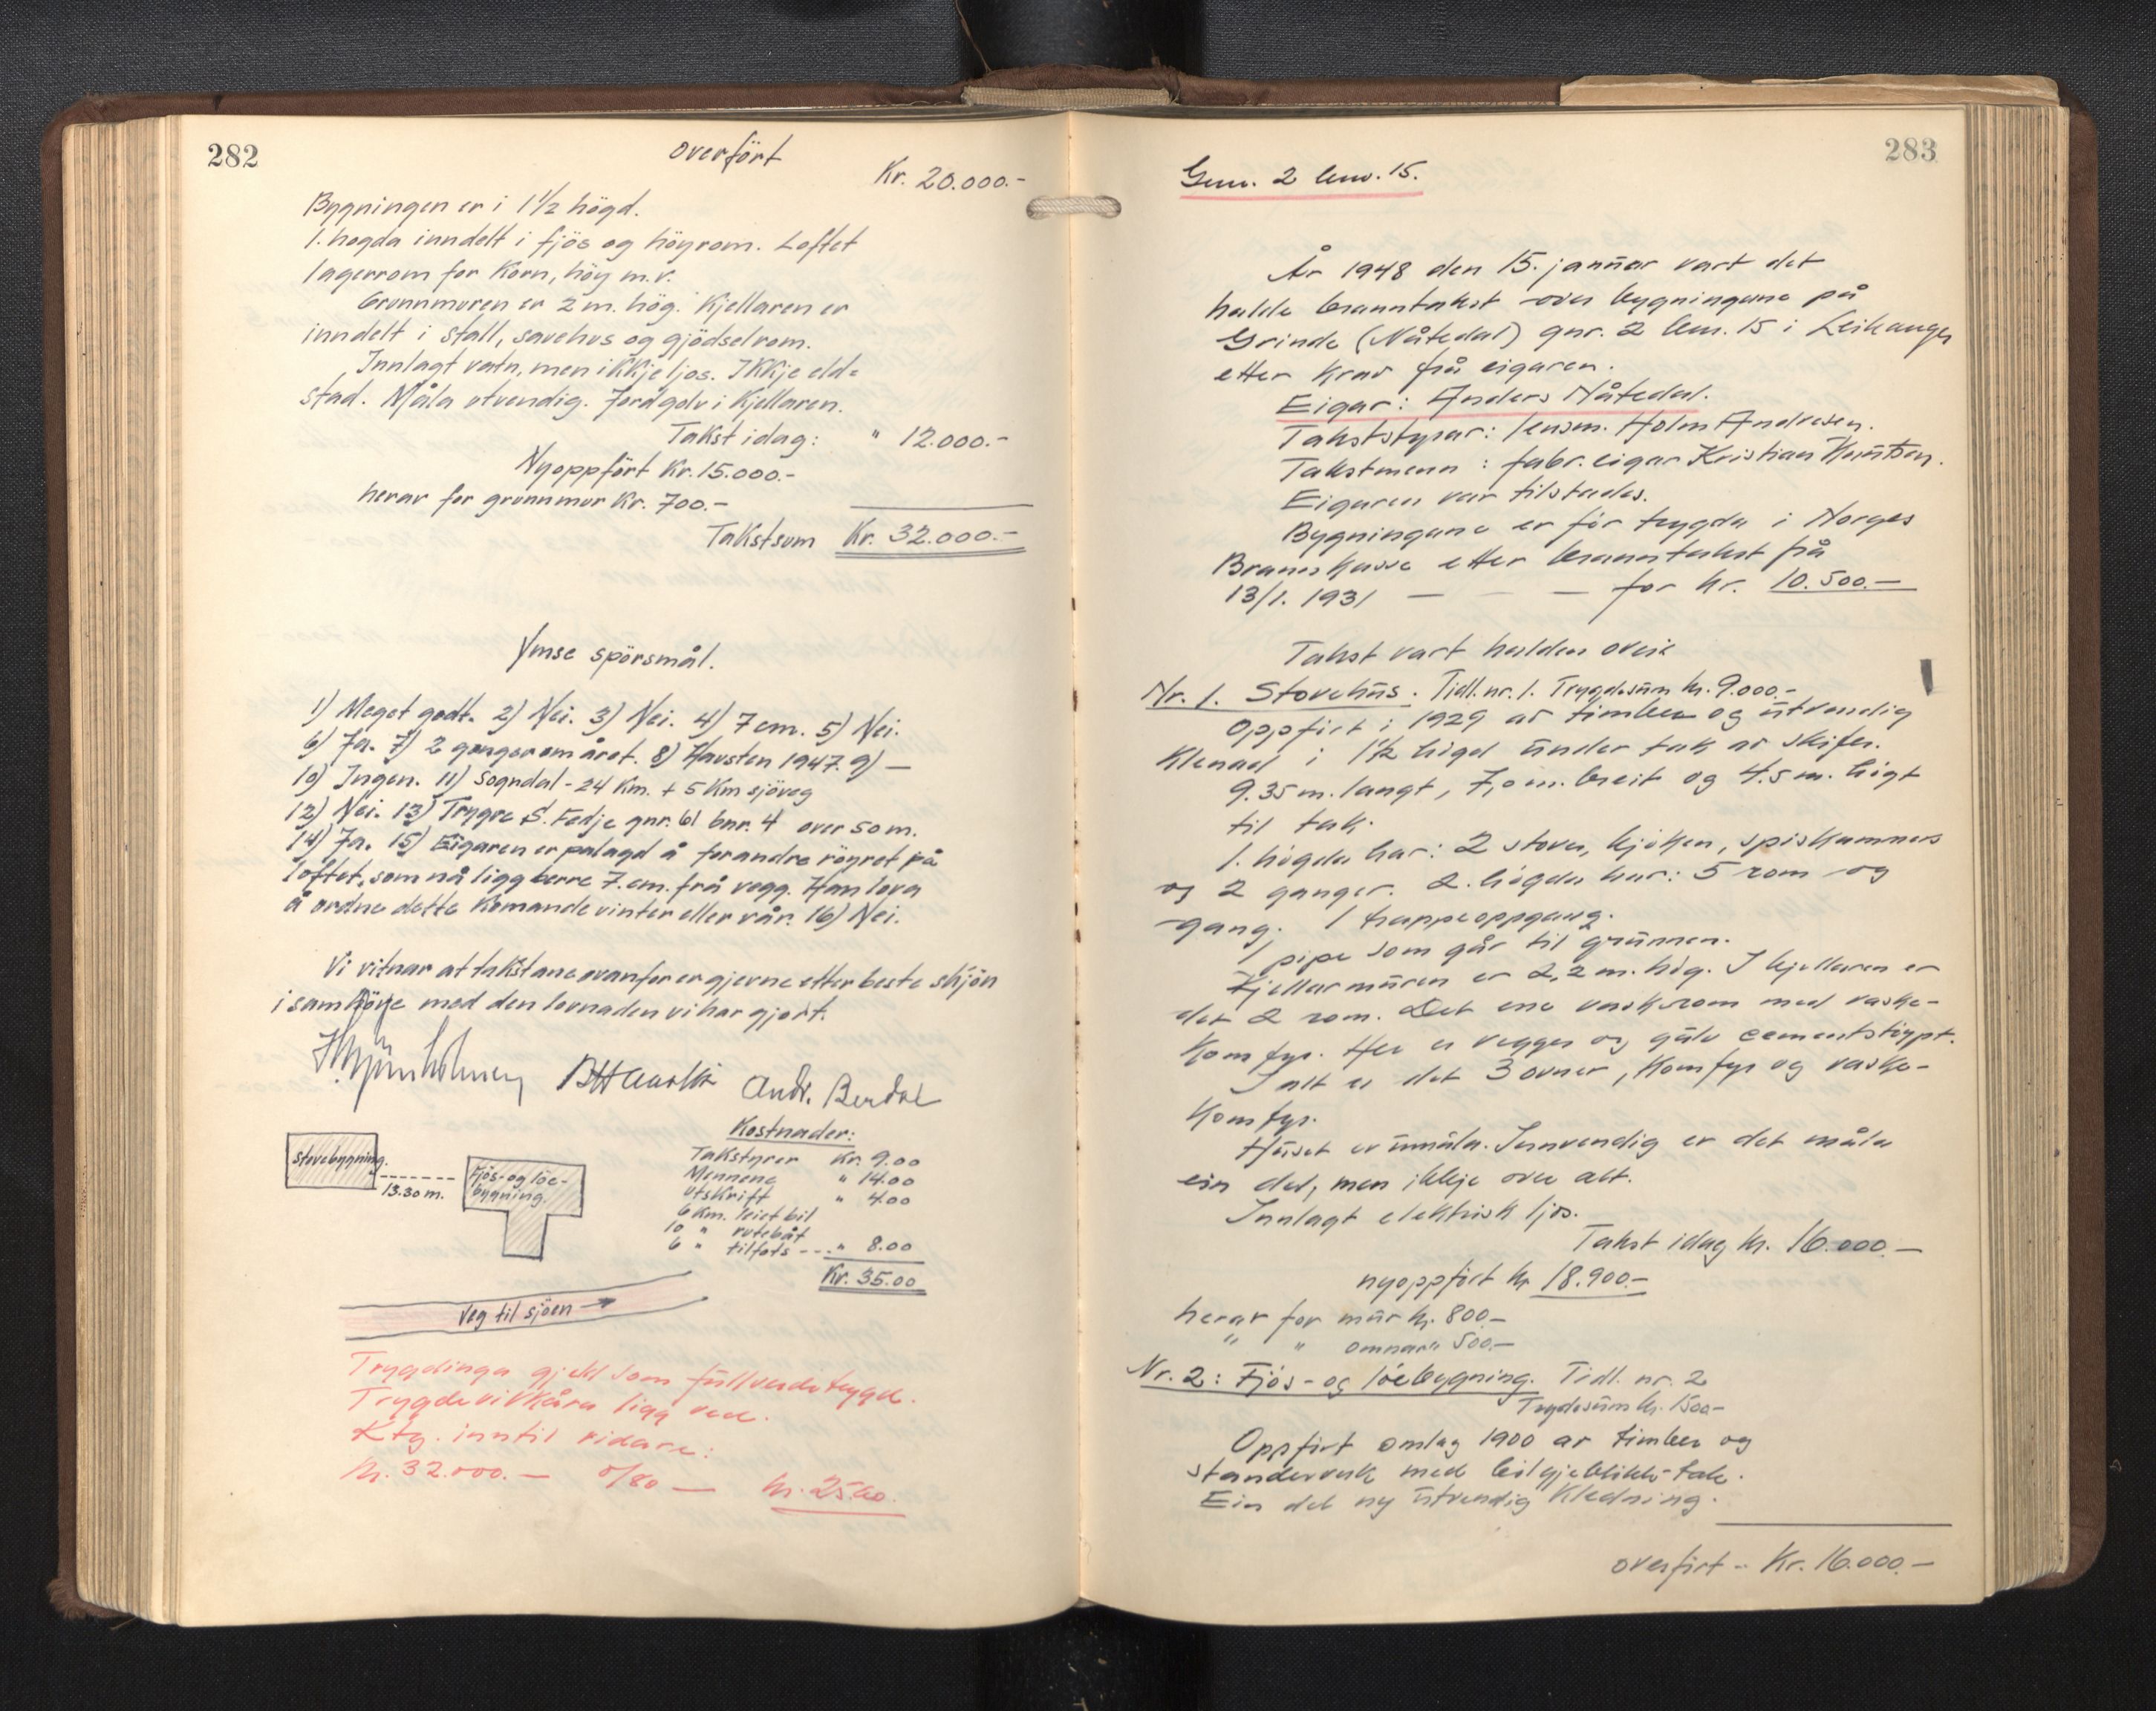 282
overfört
Kr. 20.000.-
Bygningen er i 1 1/2 högd.
1. hogda inndelt i fjös og höyrom. Loftet
lagerrom for Korn, höy m.v.
Grunnmuren er 2 m. hög. Kjellaren er
inndelt i stall, savehus og gjödselrom.
Innlagt vatn, men ikkje ljos. Ikkje eld=
stad. Måla utvendig. Jordgolv i Kjellaren.
Takst idag: " 12.000.-
Nyoppfört Kr. 15.000.-
herav for grunnmur Kr. 700.-
Takstsum Kr. 32.000.-
Ymse spörsmål.
1) Meget godt. 2) Nei. 3) Nei. 4) 7 cm. 5) Nei.
6) Ja. 7) 2 gonger om året. 8) Hausten 1947. 9) —
10) Ingen. 11) Sogndal - 24 Km. + 5 Km sjöveg
12) Nei. 13) Trygve S. Fedje gnr. 61 bnr. 4 over 50 m.
14) Ja. 15) Eigaren er palagd å forandre röyret på
loftet, som nå ligg berre 7. cm. frå vegg. Han lova
å ordne dette Komande vinter eller vår. 16) Nei.
Vi vitnar at takstane ovanfor er gjevne etter beste skjön
i samhöve med den lovnaden vi har gjort.
Andr. Berdal
Kostnader:
Takstyrer Kr. 9.00
Mennene " 14.00
Utskrift " 4.00
6 Km. leiet bil
10 " rutebåt
6 " tilfots --- " 8.00
Kr. 35.00
Stovebygning.
13.30 m.
Fjös- og löe-
bygning.
Veg til sjöen →
Trygdinga gjeld som fullverdetrygd.
Trygdevilkåra ligg ved.
Ktg. inntil vidare:
Kr. 32.000.— 0/80 — kr. 25.60
283
Gnr. 2 bnr. 15.
År 1948 den 15. januar vart det
halde branntakst over bygningane på
Grinde (Nåtedal) gnr. 2 bnr. 15 i Leikanger
etter krav frå eigaren.
Eigar: Anders Nåtedal.
Takststyrar: lensm. Holm Andresen.
Takstmenn: fabr. eigar Kristian Knutsen.
Eigaren var tilstades.
Bygningane er för trygda i Norges
Brannkasse etter branntakst frå
13/1. 1931 — — — for kr. 10.500.—
Takst vart halden over
Nr. 1. Stovehus. Tidl. nr. 1. Trygdesum kr. 9.000.-
Oppfört i 1929 av timber og utvendig
Klenad i 1 1/2 högd under tak av skifer.
9.35 m. langt, 7,0 m. breit og 4.5 m. högt
til tak.
1. högda har: 2 stover, kjöken, spiskammers
og 2 ganger. 2. högda har: 5 rom og
gang. 1 trappeoppgang.
1 pipe som går til grunnen.
Kjellarmuren er 2,2 m. hög. I kjellaren er
det 2 rom. Det ene vaskerom med vaske-
Komfyr. Her er vegger og gulv cementstöypt.
I alt er det 3 ovner, Komfyr og vaske-
Komfyr.
Huset er umåla. Innvendig er det måla
ein del, men ikkje over alt.
Innlagt elektrisk ljos.
Takst idag kr. 16.000.—
nyoppfört kr 18.900.—
herav for mur kr. 800.—
" " omnar " 500.—
Nr. 2: Fjös- og löebygning. Tidl. nr. 2
Trygdesum kr. 1500-
Oppfört omlag 1900 av timber og
standerverk med bölgjeblikk-tak.
Ein del ny utvendig Kledning.
overfört - Kr. 16.000.—